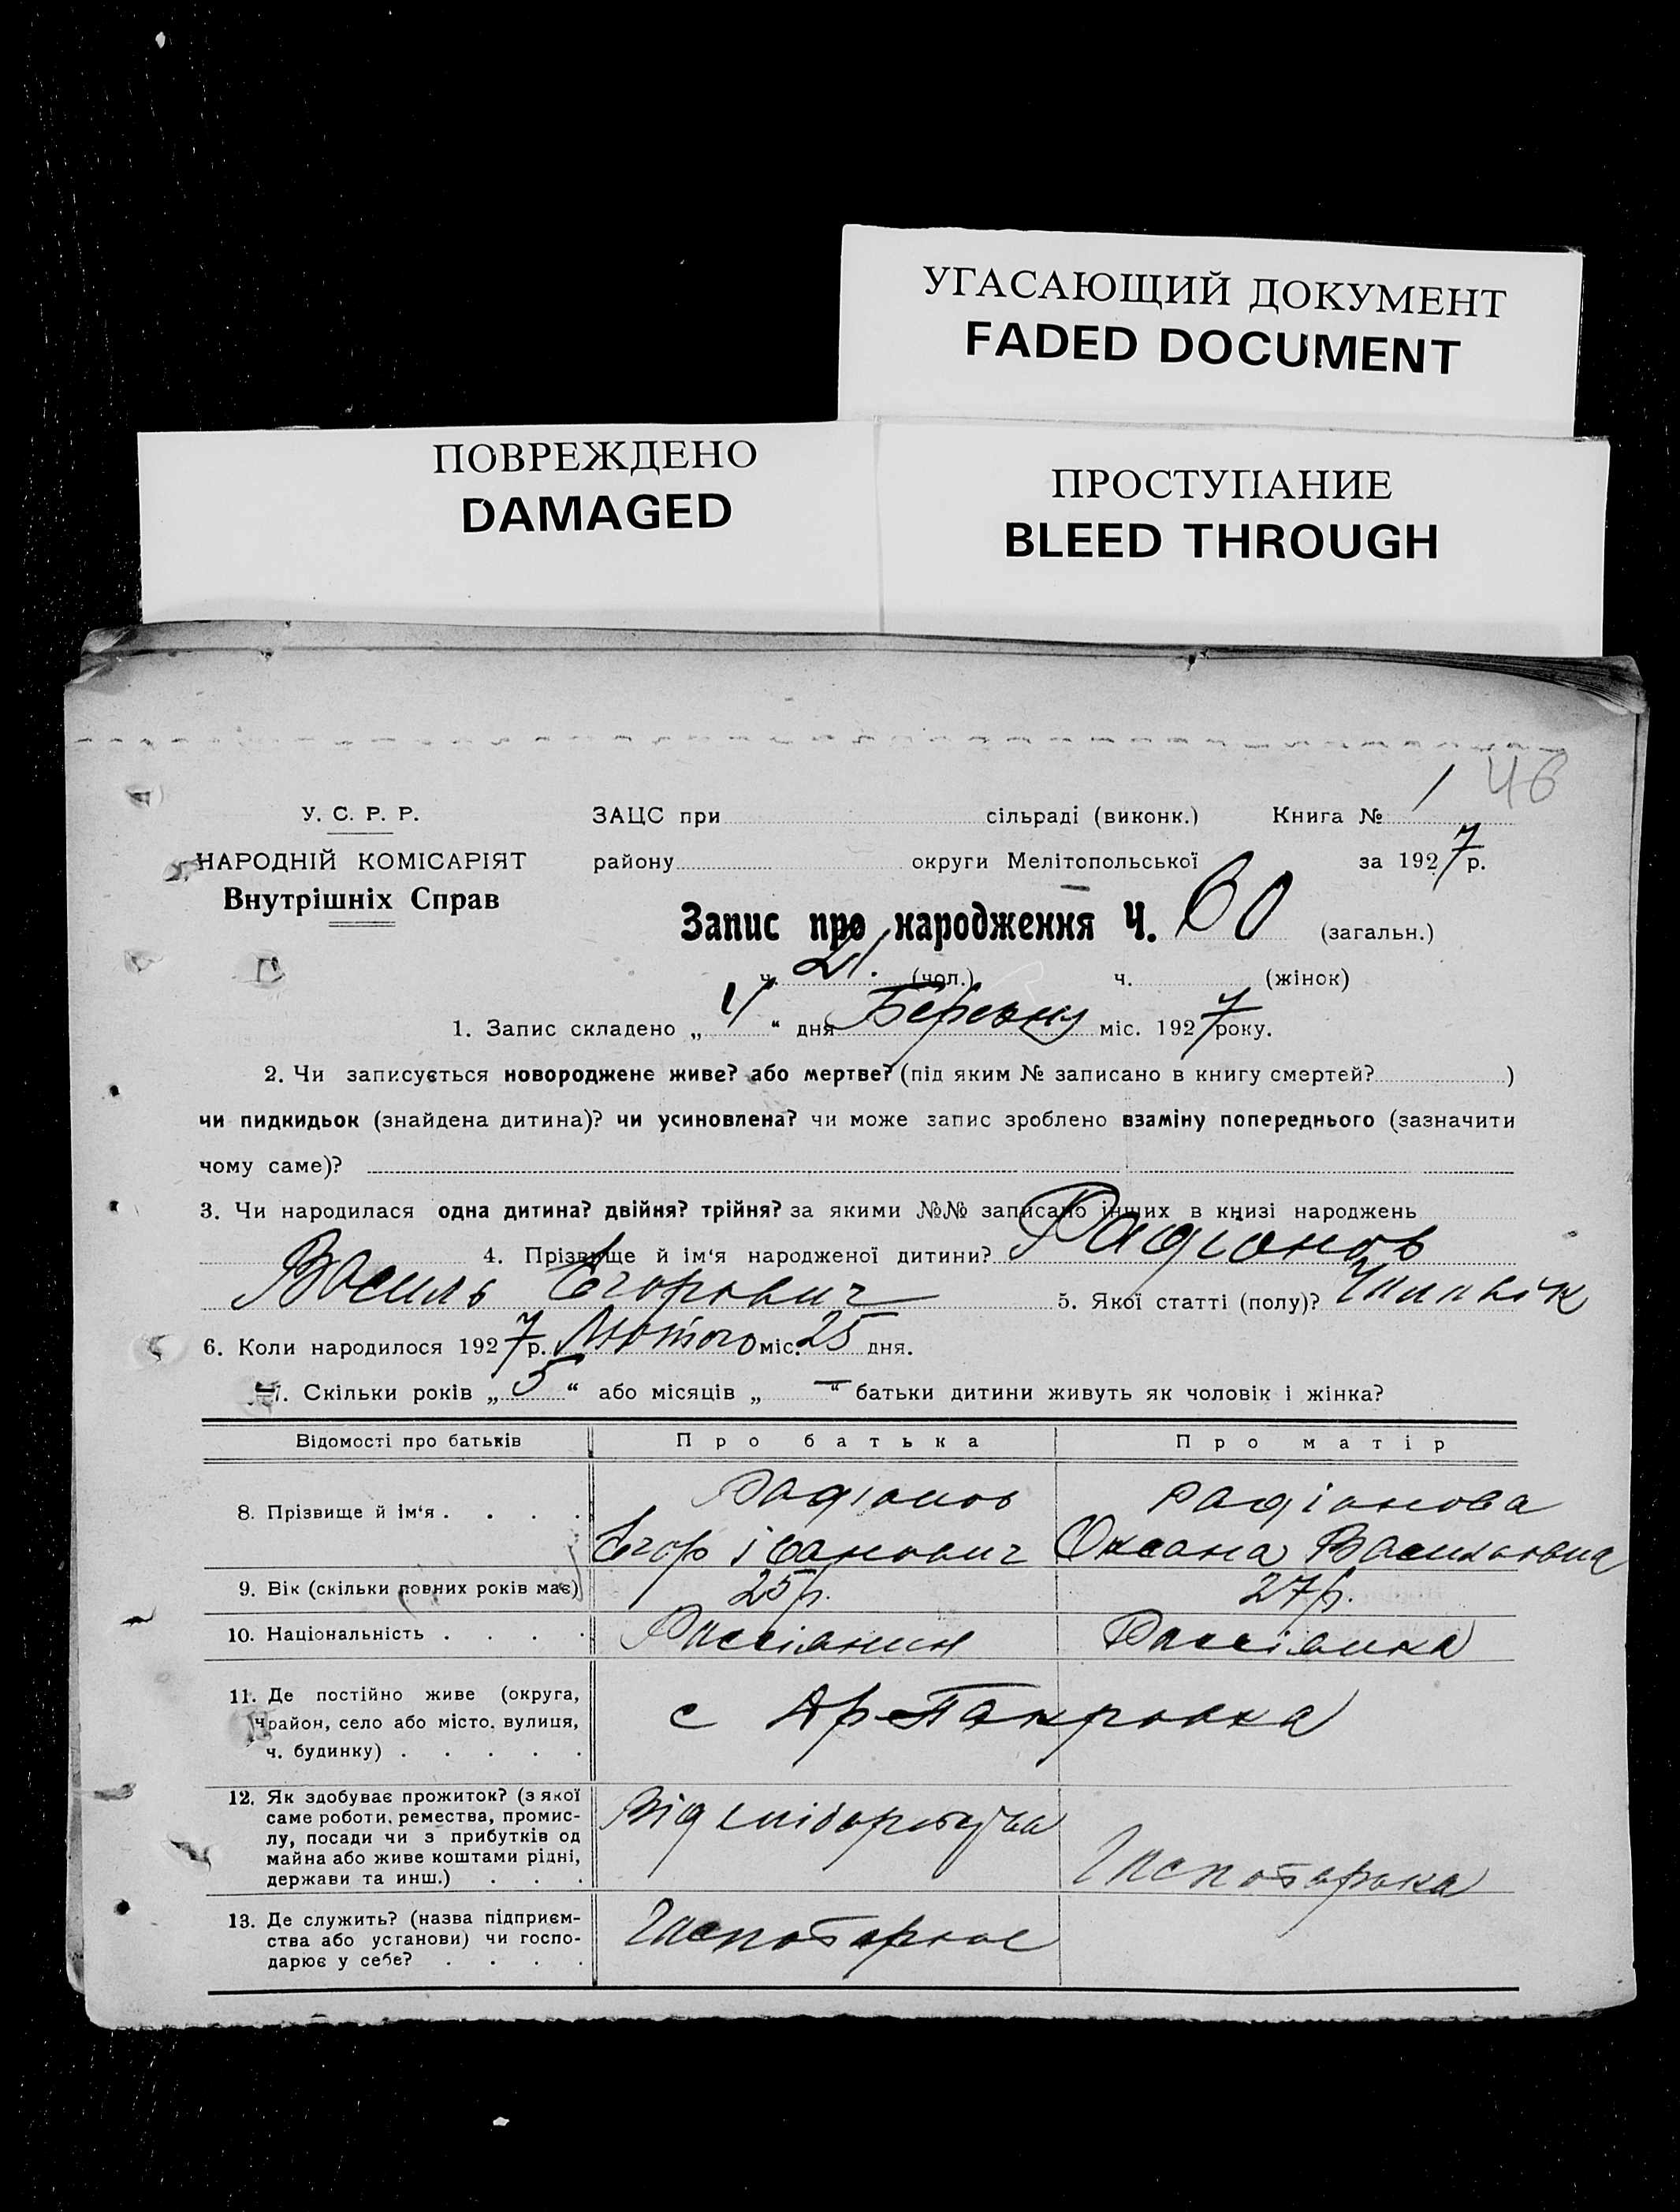 УГАСАЮЩИЙ ДОКУМЕНТ
FADED DOCUMENT
ПОВРЕЖДЕНО
DAMAGED
ПРОСТУПАНИЕ
BLEED THROUGH
46
У. С. Р. Р. ЗАЦС при сільраді (виконк.) Книга № 1
НАРОДНІЙ КОМІСАРІЯТ району округи Мелітопольської за 1927 р.
Внутрішніх Справ
Запис про народження Ч. 60 (загальн.)
ч. 21. (чол.) ч. (жінок)
1. Запис складено „ 4 “ дня Березня міс. 1927 року.
2. Чи записується новороджене живе? або мертве? (під яким № записано в книгу смертей? )
чи пидкидьок (знайдена дитина)? чи усиновлена? чи може запис зроблено взаміну попереднього (зазначити
чому саме)?
3. Чи народилася одна дитина? двійня? трійня? за якими №№ записано інших в книзі народжень
4. Прізвище й ім‘я народженої дитини? Радіонов
Василь Єгорович 5. Якої статті (полу)?
6. Коли народилося 1927 р. Лютого міс. 25 дня.
7. Скільки років „ 5 “ або місяців „ — “ батьки дитини живуть як чоловік і жінка?
Відомості про батьків Про батька Про матір
8. Прізвище й ім‘я . . . . Радіонов Радіонова
Єгор іванович Оксана Васильовна
9. Вік (скільки повних років має) 25 р. 27 р.
10. Національність . . . . Рассіанин Рассіанка
11. Де постійно живе (округа,
район, село або місто, вулиця,
ч. будинку) . . . . . с Ар-Пакровка
12. Як здобуває прожиток? (з якої
саме роботи, ремества, промис-
лу, посади чи з прибутків од
майна або живе коштами рідні,
держави та инш.) . . . Від
13. Де служить? (назва підприєм-
ства або установи) чи госпо-
дарює у себе? . . . .